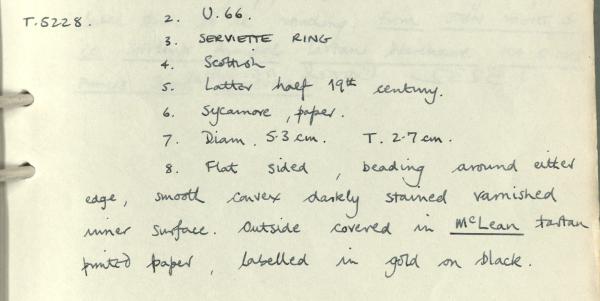 T.5228. 2. U.66.
3. SERVIETTE RING
4. Scottish
5. Latter half 19th century.
6. Sycamore, paper.
7. Diam. 5.3 cm. T. 2.7 cm.
8. Flat sided, beading around either
edge, smooth convex darkly stained varnished
inner surface. Outside covered in McLean tartan
printed paper, labelled in gold on black.